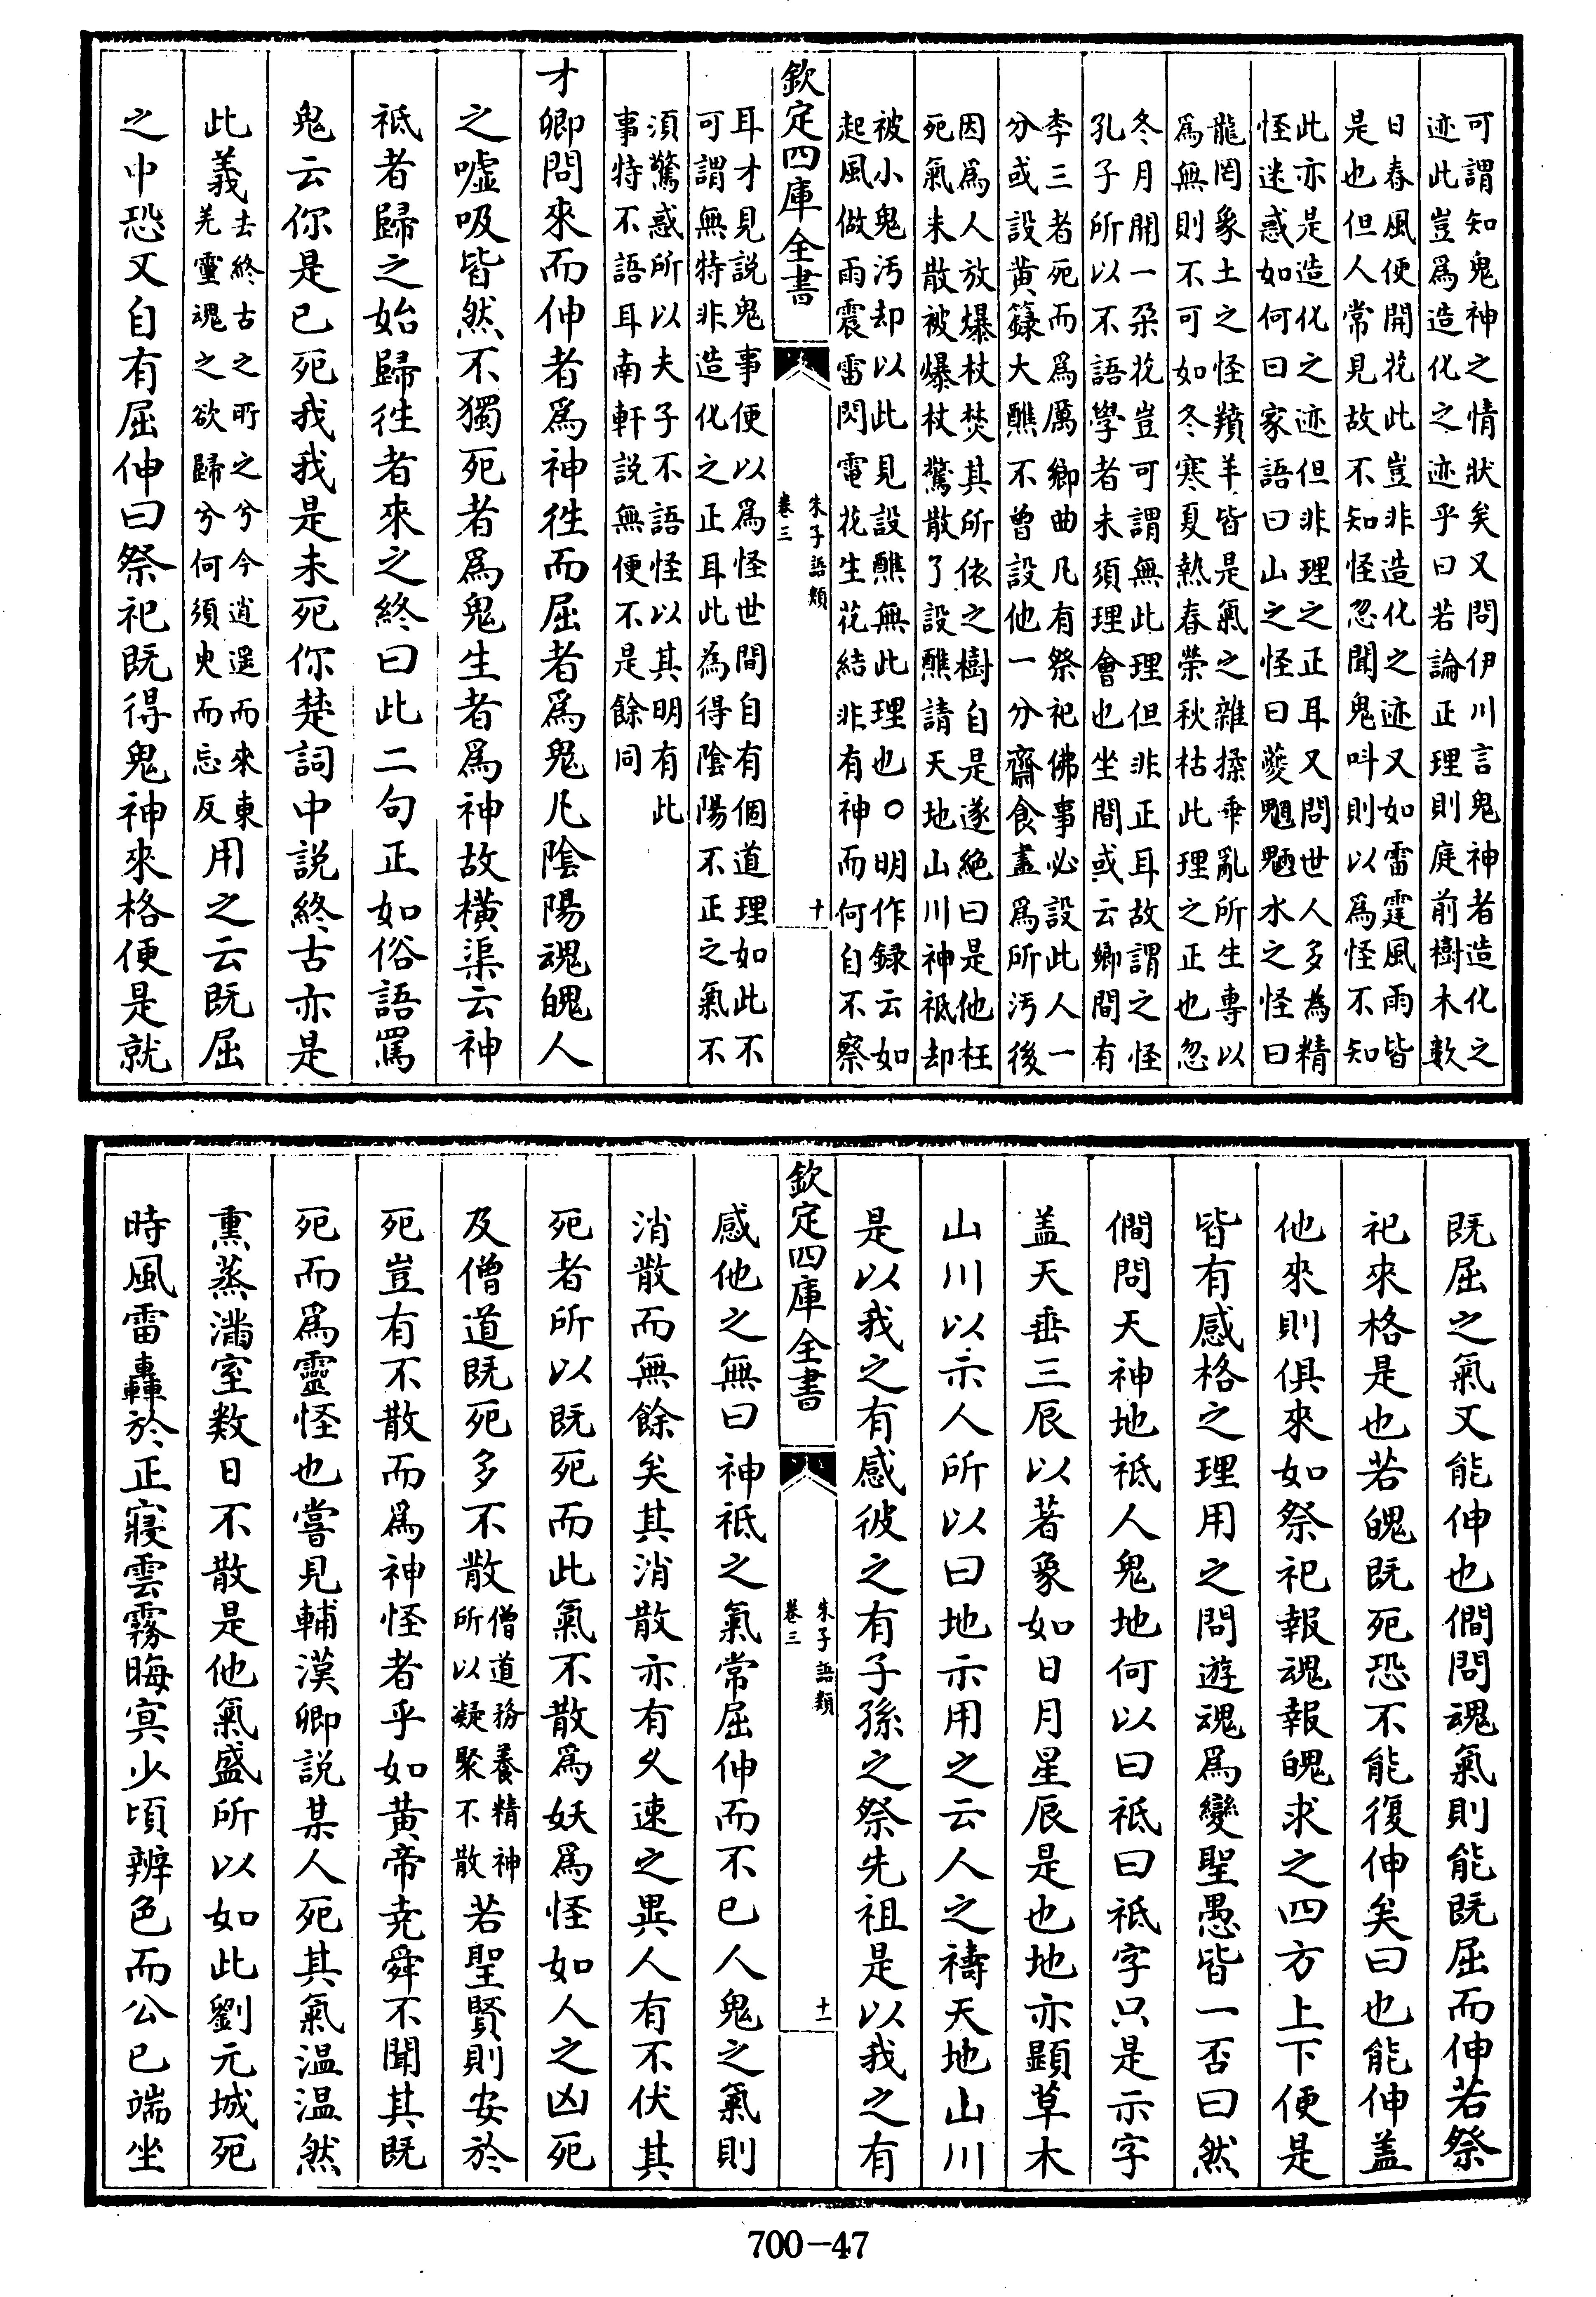 可謂知鬼神之情狀矣又問伊川言鬼神者造化之
迹此豈爲造化之迹乎曰若論正理則庭前樹木數
日春風便開花此豈非造化之迹又如雷霆風雨皆
是也但人常見故不知怪忽聞鬼呌則以爲怪不知
此亦是造化之迹但非理之正耳又問世人多為精
怪迷惑如何曰家語曰山之怪曰夔魍魎水之怪曰
龍罔象土之怪羵羊皆是氣之雜揉乖亂所生專以
爲無則不可如冬寒夏熱春榮秋枯此理之正也忽
冬月開一朶花豈可謂無此理但非正耳故謂之怪
孔子所以不語學者未須理會也坐間或云鄉間有
李三者死而爲厲鄉曲凡有祭祀佛事必設此人一
分或設黄籙大醮不曾設他一分齋食盡爲所汚後
因爲人放爆杖焚其所依之樹自是遂絶曰是他枉
死氣未散被爆杖驚散了設醮請天地山川神祇却
被小鬼汚却以此見設醮無此理也○明作録云如
起風做雨震雷閃電花生花結非有神而何自不察
欽定四庫全書
朱子語類
卷三
十
耳才見說鬼事便以爲怪世間自有個道理如此不
可謂無特非造化之正耳此為得陰陽不正之氣不
須驚惑所以夫子不語怪以其明有此
事特不語耳南軒說無便不是餘同
才卿問來而伸者爲神徃而屈者爲鬼凡陰陽魂魄人
之嘘吸皆然不獨死者爲鬼生者爲神故橫渠云神
祇者歸之始歸徃者來之終曰此二句正如俗語罵
鬼云你是已死我我是未死你楚詞中說終古亦是
此義去終古之所之兮今逍遥而來東
羌靈魂之欲歸兮何須臾而忘反用之云既屈
之中恐又自有屈伸曰祭祀既得鬼神來格便是就
既屈之氣又能伸也僩問魂氣則能既屈而伸若祭
祀來格是也若魄既死恐不能復伸矣曰也能伸盖
他來則俱來如祭祀報魂報魄求之四方上下便是
皆有感格之理用之問遊魂爲變聖愚皆一否曰然
僩問天神地祇人鬼地何以曰祇曰祇字只是示字
盖天垂三辰以著象如日月星辰是也地亦顯草木
山川以示人所以曰地示用之云人之禱天地山川
是以我之有感彼之有子孫之祭先祖是以我之有
欽定四庫全書
朱子語類
卷三
十一
感他之無曰神祇之氣常屈伸而不已人鬼之氣則
消散而無餘矣其消散亦有乆速之異人有不伏其
死者所以既死而此氣不散爲妖爲怪如人之凶死
及僧道既死多不散僧道務養精神
所以凝聚不散若聖賢則安於
死豈有不散而爲神怪者乎如黄帝尭舜不聞其既
死而爲靈怪也嘗見輔漢卿說某人死其氣温温然
熏蒸滿室数日不散是他氣盛所以如此劉元城死
時風雷轟於正寢雲霧晦㝠少頃辨色而公已端坐
700-47